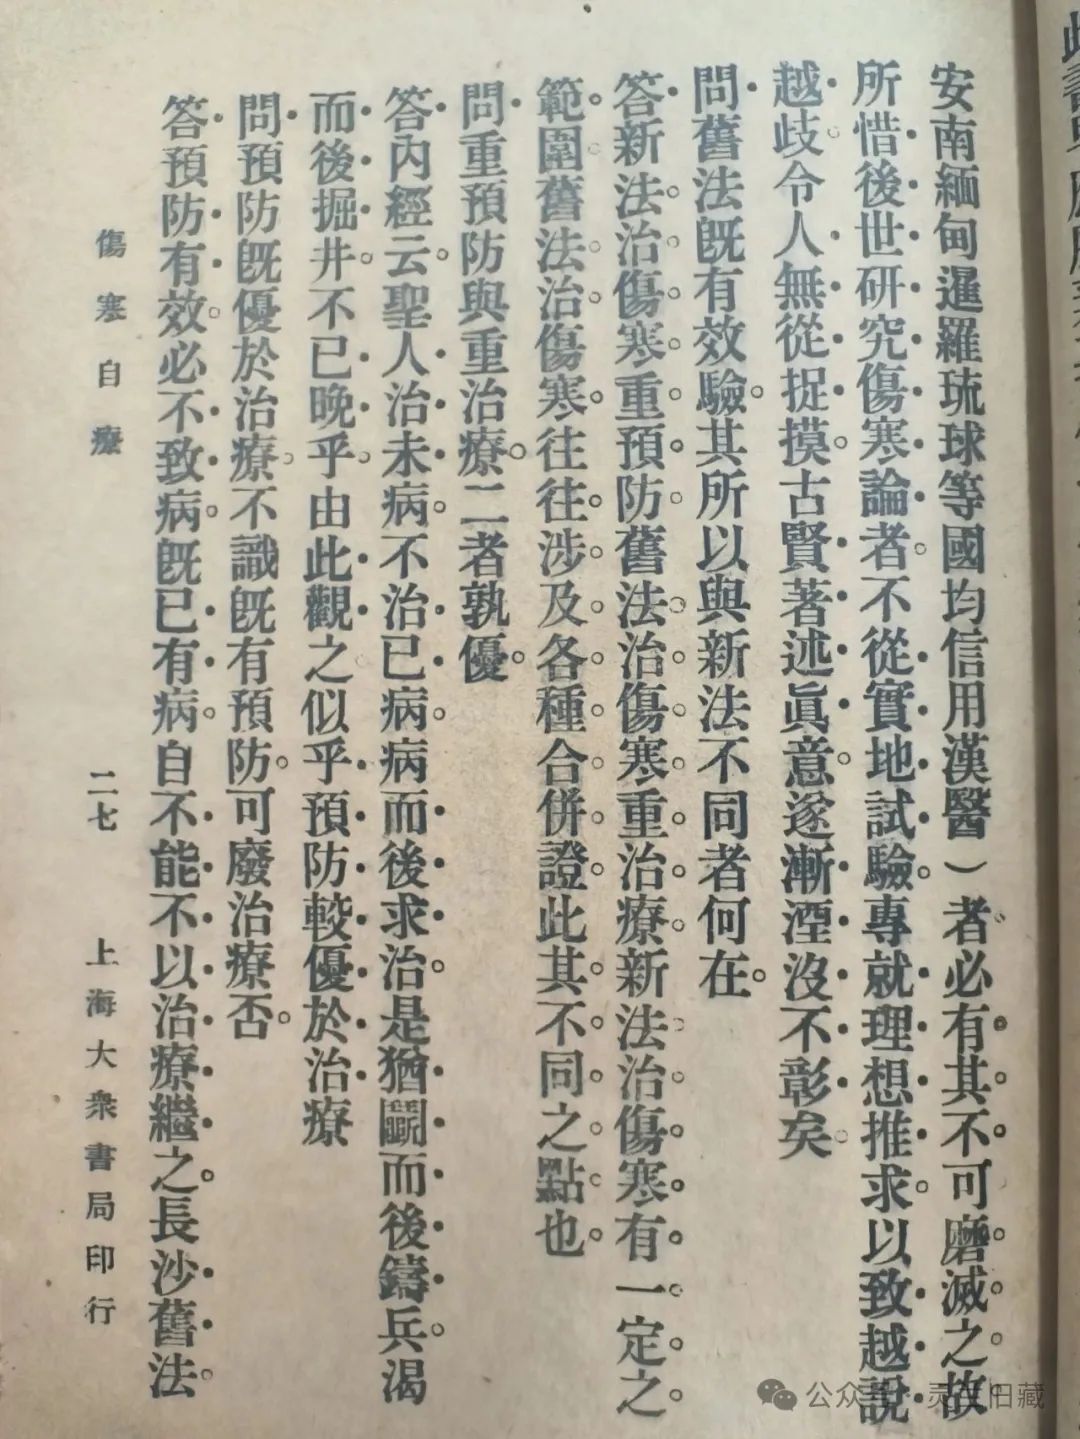 安南緬甸暹羅琉球等國均信用漢醫）者必有其不可磨滅之故
所惜後世研究傷寒論者。不從實地試驗。專就理想推求。以致越說
越歧。令人無從捉摸。古賢著述眞意。遂漸湮沒不彰矣。
問舊法既有效驗。其所以與新法不同者何在。
答新法治傷寒重預防舊法治傷寒重治療新法治傷寒有一定之
範圍舊法治傷寒往往涉及各種合併證此其不同之點也
問重預防與重治療。二者孰優。
答內經云。聖人治未病。不治已病。病而後求治是猶鬭而後鑄兵。渴
而後掘井。不已晚乎。由此觀之。似乎預防較優於治療
問預防既優於治療。不識既有預防。可廢治療否。
答預防有效。必不致病。既已有病。自不能不以治療繼之。長沙舊法。
傷寒自療
二七
上海大衆書局印行
公众号·灵 旧藏